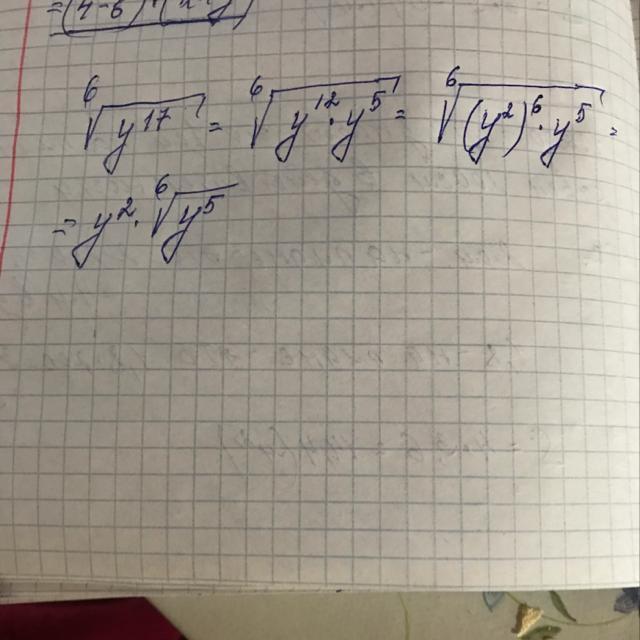 ⁶√y¹⁷ = ⁶√y¹²·y⁵ = ⁶√(y²)⁶·y⁵ =
= y²·⁶√y⁵